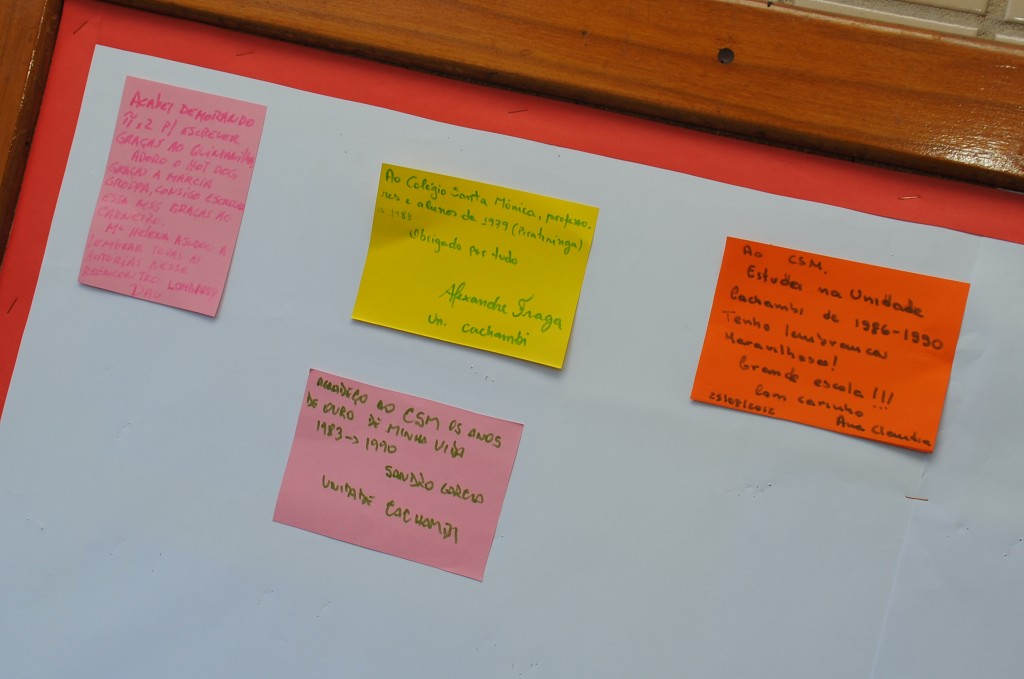 ACABEI DEMORANDO
P/ ESCREVER
GRAÇAS AO
ADORO O HOT DOG
GRAÇAS A MARCIA
GROPPA, CONSIGO ESCREVER
ESSA MSG GRAÇAS AO
Mª HELENA AJUDOU A
LEMBRAR TODAS AS
HISTÓRIAS NESSE
REENCONTRO
Ao Colégio Santa Mônica, professo-
res e alunos de 1979 (Piratininga)
a 1988
Obrigado por tudo
Alexandre Fraga
Un. Cachambi
Ao CSM,
Estudei na Unidade
Cachambi de 1986-1990
Tenho lembranças
Maravilhosas!
Grande escola!!!
Com carinho
25/08/2012
Ana Claudia
AGRADEÇO AO CSM OS ANOS
DE OURO DE MINHA VIDA
1983 → 1990
SANDRO GARCIA
UNIDADE CACHAMBI